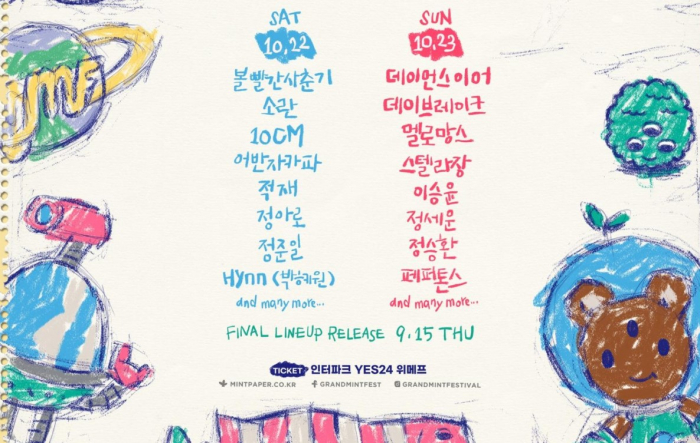 SAT
10.22
볼빨간사춘기
소란
10CM
어반자카파
적재
정아로
정준일
HYNN (박혜원)
and many more...
SUN
10.23
데이먼스이어
데이브레이크
멜로망스
스텔라장
이승윤
정세운
정승환
페퍼톤스
and many more...
FINAL LINEUP RELEASE 9.15 THU
TICKET 인터파크 YES24 위메프
MINTPAPER.CO.KR GRANDMINTFEST GRANDMINTFESTIVAL